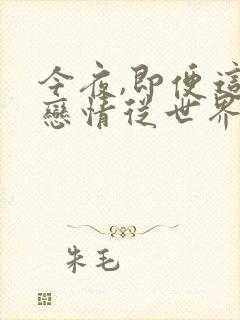 今夜,即便這
戀情從世界
朱毛